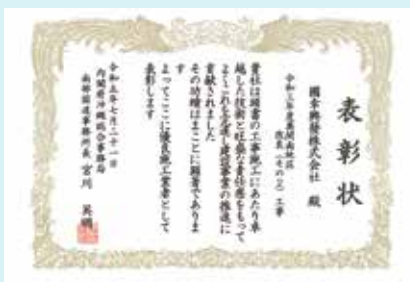 表彰状
國幸興發株式会社 殿
令和三年度豊見城地区
改良(その2)工事
貴社は頭書の工事施工にあたり卓
越した技術と旺盛な責任感をもって
よくこれを完遂し建設事業の推進に
貢献されました
その功績はまことに顕著でありま
す
よってここに優良施工業者として
表彰します
令和五年七月二十一日
内閣府沖縄総合事務局
南部国道事務所長 宮川